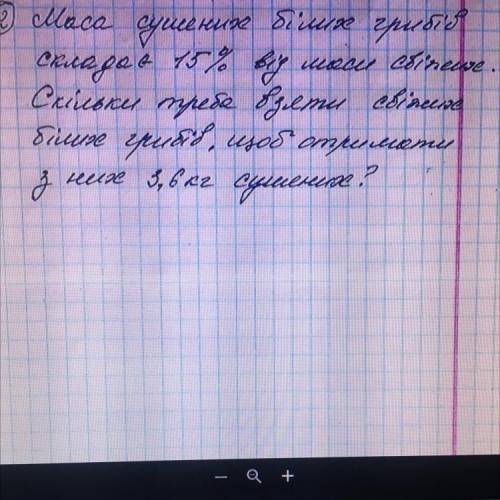 2) Маса сушених білих грибів
складає 15% від маси свіжих.
Скільки треба взяти свіжих
білих грибів, щоб отримати
з них 3,6 кг сушених?